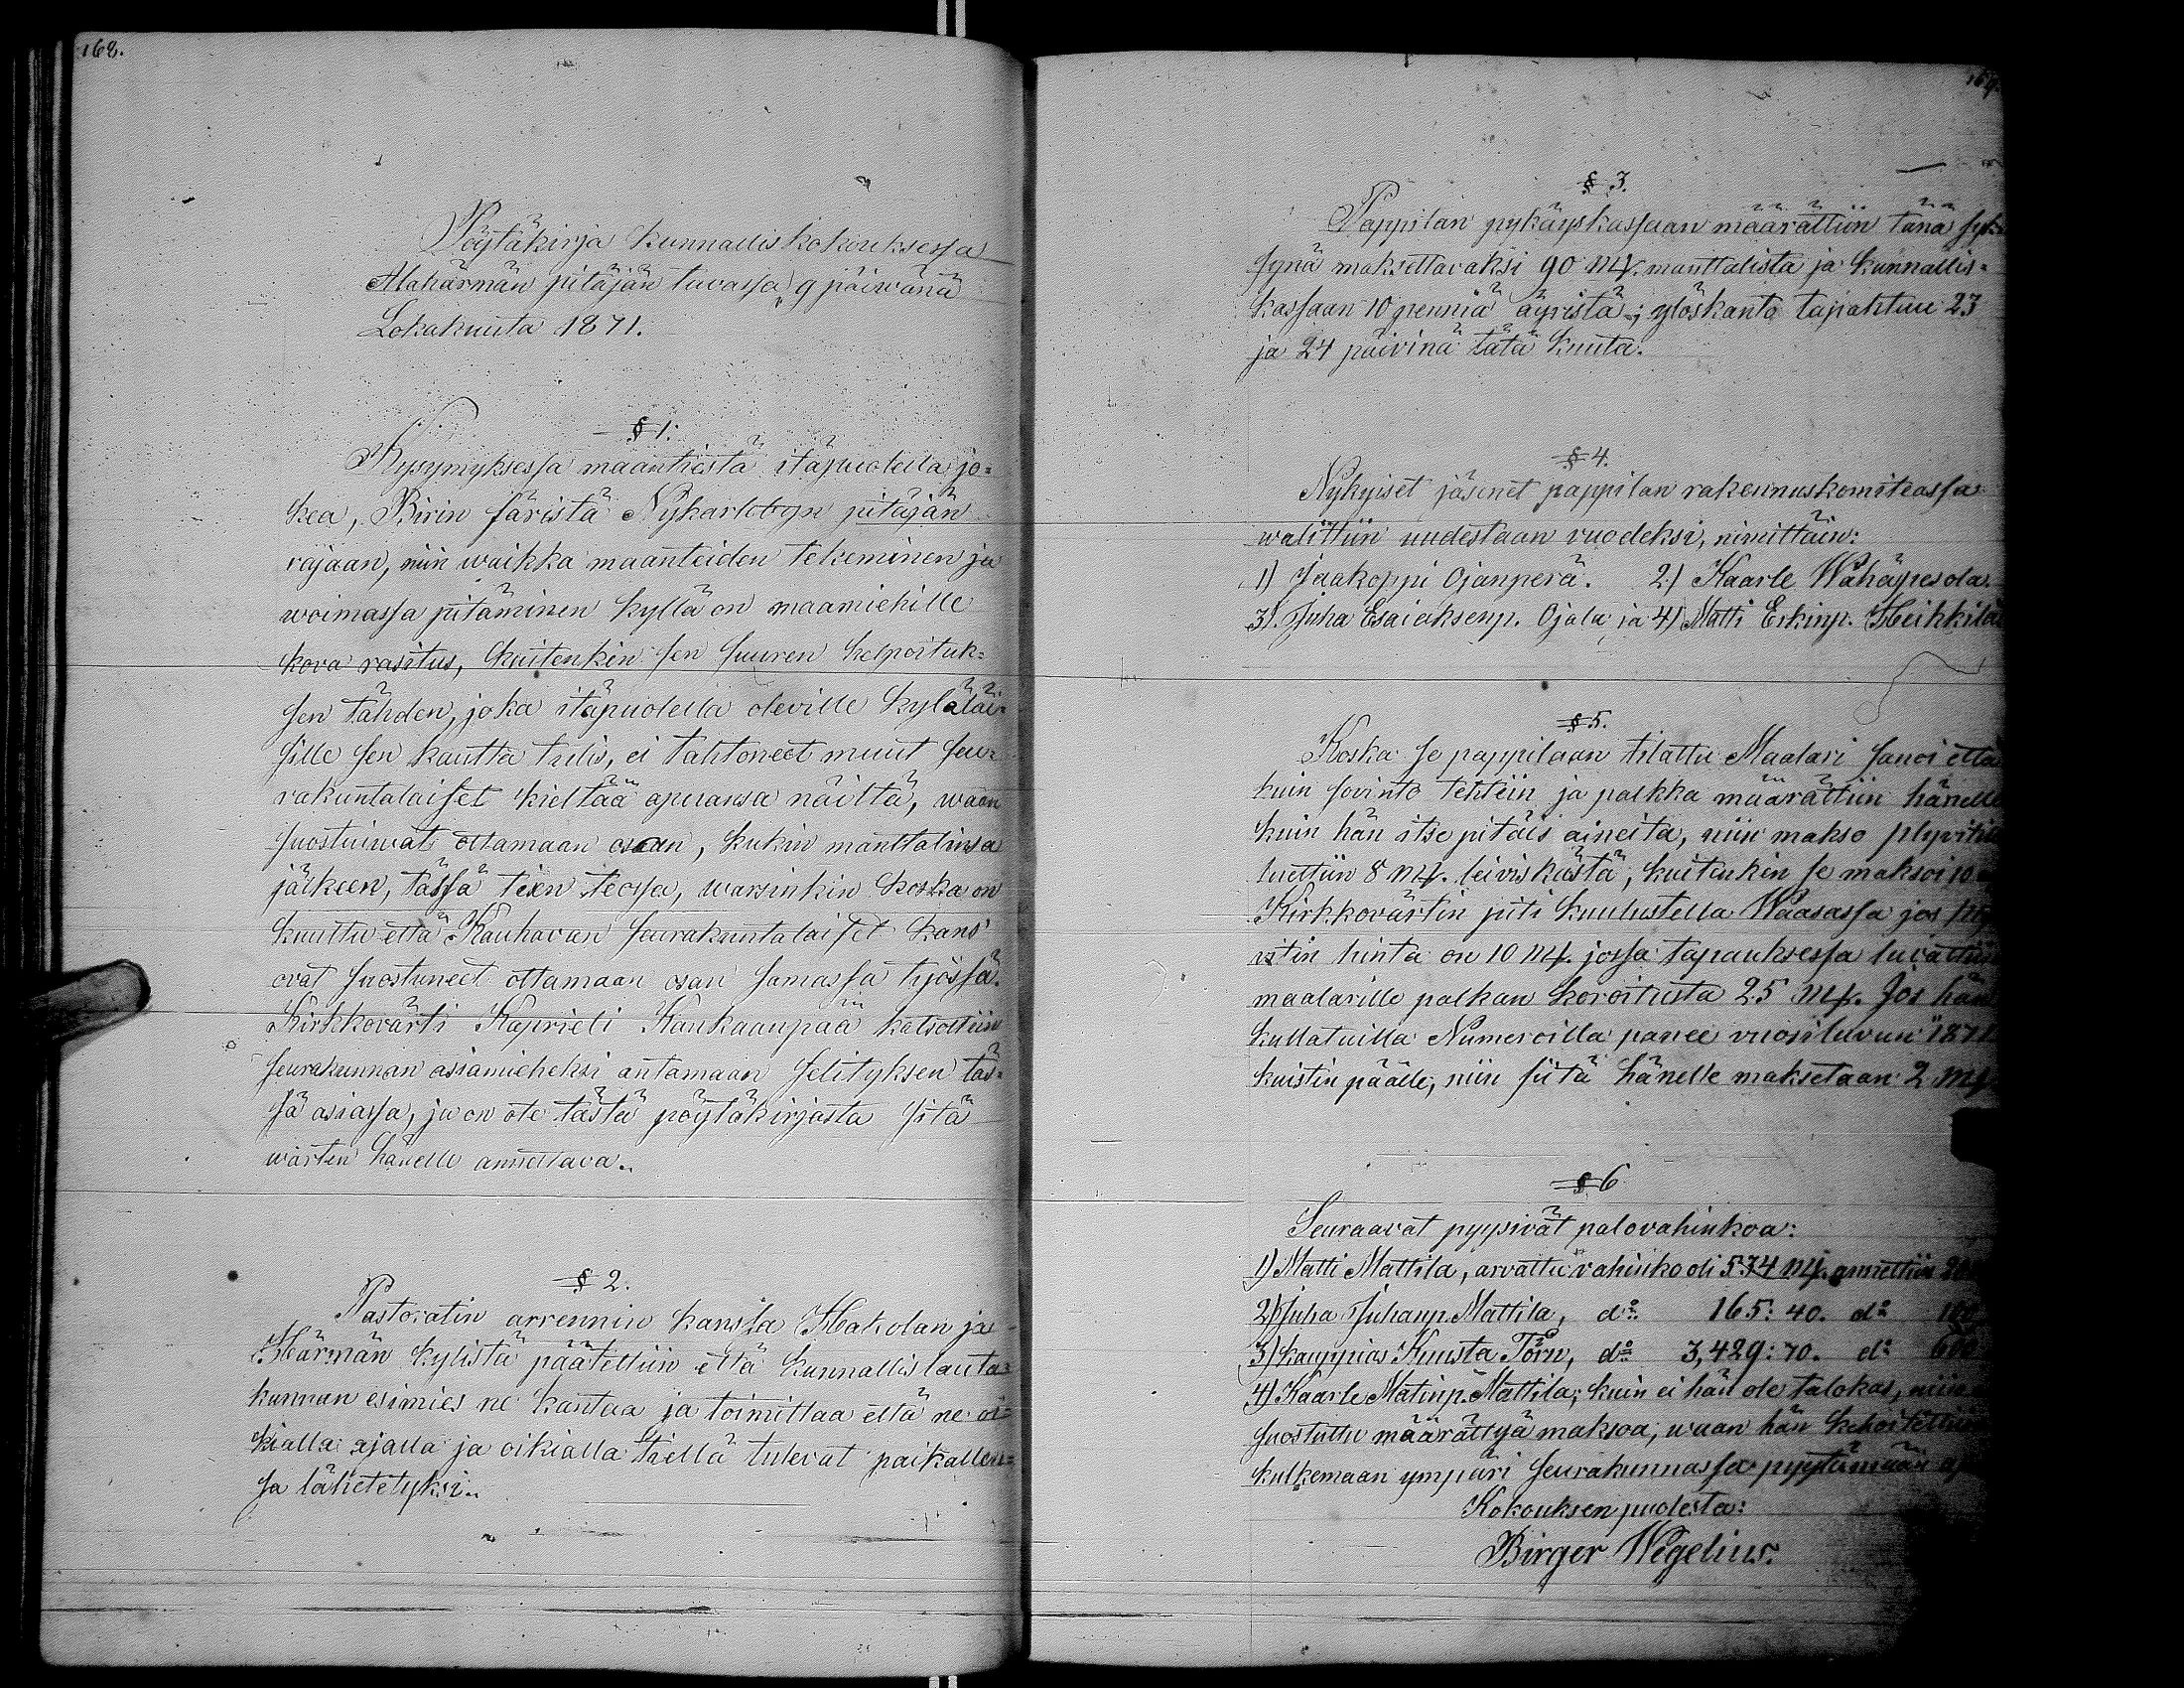 168.
Pöytäkirja kunnalliskokouksessa
Alahärmän pitäjän tuvassa 9 päiwänä
Lokakuuta 1871.
§ 1.
Kysymyksessä maantiestä itäpuolella jo=
kea, Birin säristä Nykarlebyn pitäjän
rajaan, niin waikka maanteiden tekeminen ja
woimassa pitäminen kyllä on maamiehille
kova rasitus, kuitenkin sen suuren helpoituk=
sen tähden, joka itäpuolella oleville kyläläi=
sille sen kautta tulis, ei tahtoneet muut seu=
rakuntalaiset kieltää apuansa näiltä, waan
suostuiwat ottamaan osaan, kukin manttalinsa
jälkeen, tässä tien teossa, warsinkin koska on
kuultu että Kauhavan seurakuntalaiset kans'
ovat suostuneet ottamaan osan samassa työssä.
Kirkkovärti Kaprieli Kankaanpää katsottiin
seurakunnan asiamieheksi antamaan selityksen täs=
sä asiassa, ja on ote tästä pöytäkirjasta sitä
warten hänelle annettava.
§ 2.
Pastoratin arrennin kanssa Hakolan ja
Härmän kylistä päätettiin että kunnallislauta=
kunnan esimies ne kantaa ja toimittaa että ne oi=
kialla ajalla ja oikialla tiellä tulevat paikallen=
sa lähetetyksi.
169.
§ 3.
Pappilan pykäyskassaan määrättiin tänä syk=
synä maksettavaksi 90 mk. manttalista ja kunnallis=
kassaan 10 penniä äyristä; ylöskanto tapahtuu 23
ja 24 päivinä tätä kuuta.
§ 4.
Nykyiset jäsenet pappilan rakennuskomiteassa
walittiin uudestaan vuodeksi, nimittäin:
1) Jaakoppi Ojanperä. 2) Kaarle Wähäpesola
3). Juha Esaiaksenp. Ojala ja 4) Matti Erkinp. Heikkilä
§ 5.
Koska se pappilaan tilattu Maalari sanoi että
kuin sovinto tehtiin ja palkka määrättiin hänelle
kuin hän itse pitäis aineita, niin makso plyvitin
luettiin 8 mk. leiviskästä, kuitenkin se maksoi 10
Kirkkovärtin piti kuulustella Waasassa jos
vitin hinta on 10 mk. jossa tapauksessa luvattiin
maalarille palkan koroitusta 25 mk. Jos hän
kullatuilla Numeroilla panee vuosiluvun "1871
kuistin päälle, niin siitä hänelle maksetaan 2 mk
§ 6
Seuraavat pyysivät palovahinkoa:
1) Matti Mattila, arvattu vahinko oli 574 mk. annettiin
2) Juha Juhanp. Mattila, do 165: 40. do 100
3) Kauppias Kuusta Törn, do 3,429: 70. do 600
4) Kaarle Matinp. Mattila; kuin ei hän ole talokas, niin
suostuttu määrättyä maksoa, waan hän kehoitettiin
kulkemaan ympäri seurakunnassa pyytämään
Kokouksen puolesta:
Birger Wegelius.